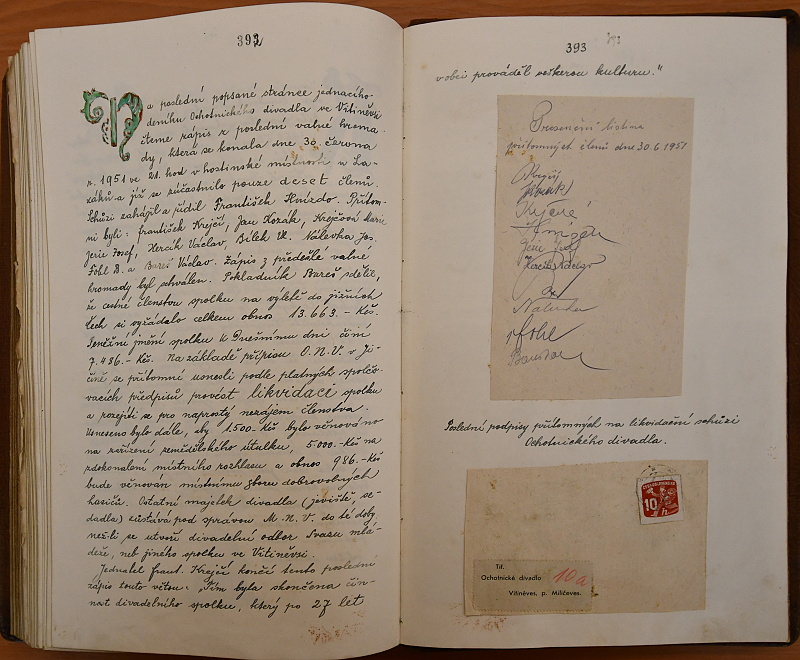 392
Na poslední popsané stránce jednacího
deníku Ochotnického divadla ve Vitiněvsi
čteme zápis z poslední valné hroma-
dy, která se konala dne 30. června
r. 1951 ve 21. hod v hostinské místnosti u La-
záků a již se zúčastnilo pouze deset členů.
Schůzi zahájil a řídil František Hvízdo. Přítom-
ni byli: František Krejčí, Jan Kozák, Krejčová Marie
Jerie Josef, Hercík Václav, Bílek Vl. Nálevka Jos.
Fohl B. a Bareš Václav. Zápis z předešlé valné
hromady byl schválen. Pokladník Bareš sdělil,
že cestné členstva spolku na výletě do jižních
Čech si vyžádalo celkem obnos 13.663.- Kčs.
Peněžní jmění spolku k Dnešnímu dni činí
7.486.- Kčs. Na základě přípisu O.N.V. v Ji-
číně se přítomní usnesli podle platných spolčo-
vacích předpisů provést likvidaci spolku
a rozejíti se pro naprostý nezájem členstva.
Usneseno bylo dále, aby 1500-Kčs bylo věnováno
na zařízení zemědělského útulku, 5.000.-Kčs na
zdokonalení místního rozhlasu a obnos 986.-Kčs
bude věnován místnímu sboru dobrovolných
hasičů. Ostatní majetek divadla (jeviště, se-
dadla) zůstává pod správou M.N.V. do té doby
než-li se utvoří divadelní odbor Svazu mlá-
deže, neb jiného spolku ve Vitiněvsi.
Jednatel Frant. Krejčí končí tento poslední
zápis touto větou: „Tím byla skončena čin-
nost divadelního spolku, který po 27 let
393
v obci prováděl veškerou kulturu."
Presenční listina
přítomných členů dne 30.6.1951
Krejčí
Jerie Josef
Hercík Václav
Nálevka
Fohl
Poslední podpisy přítomných na likvidační schůzi
Ochotnického divadla.
10 h
Tit.
Ochotnické divadlo 10a
Vitiněves, p. Miličeves.